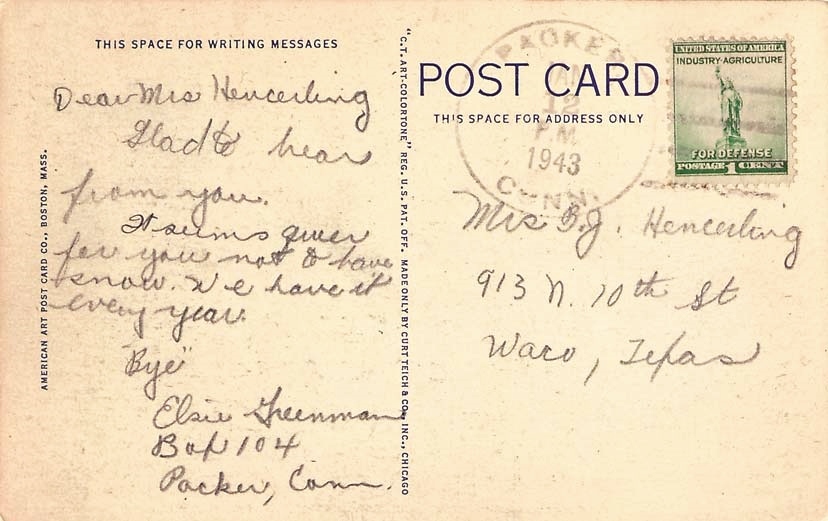 THIS SPACE FOR WRITING MESSAGES
Dear Mrs Hencerling
Glad to hear
from you.
It seems queer
for you not to have
snow. We have it
every year.
"Bye"
Elsie Greenman
Box 104
Packer, Conn.
AMERICAN ART POST CARD CO., BOSTON, MASS.
"C.T. ART-COLORTONE" REG. U.S. PAT. OFF. MADE ONLY BY CURT TEICH & CO., INC., CHICAGO
POST CARD
THIS SPACE FOR ADDRESS ONLY
PACKER
JAN
12
P.M.
1943
CONN.
UNITED STATES OF AMERICA
INDUSTRY·AGRICULTURE
FOR DEFENSE
POSTAGE 1 CENT
Mrs B.J. Hencerling
913 N. 10th St
Waco, Texas